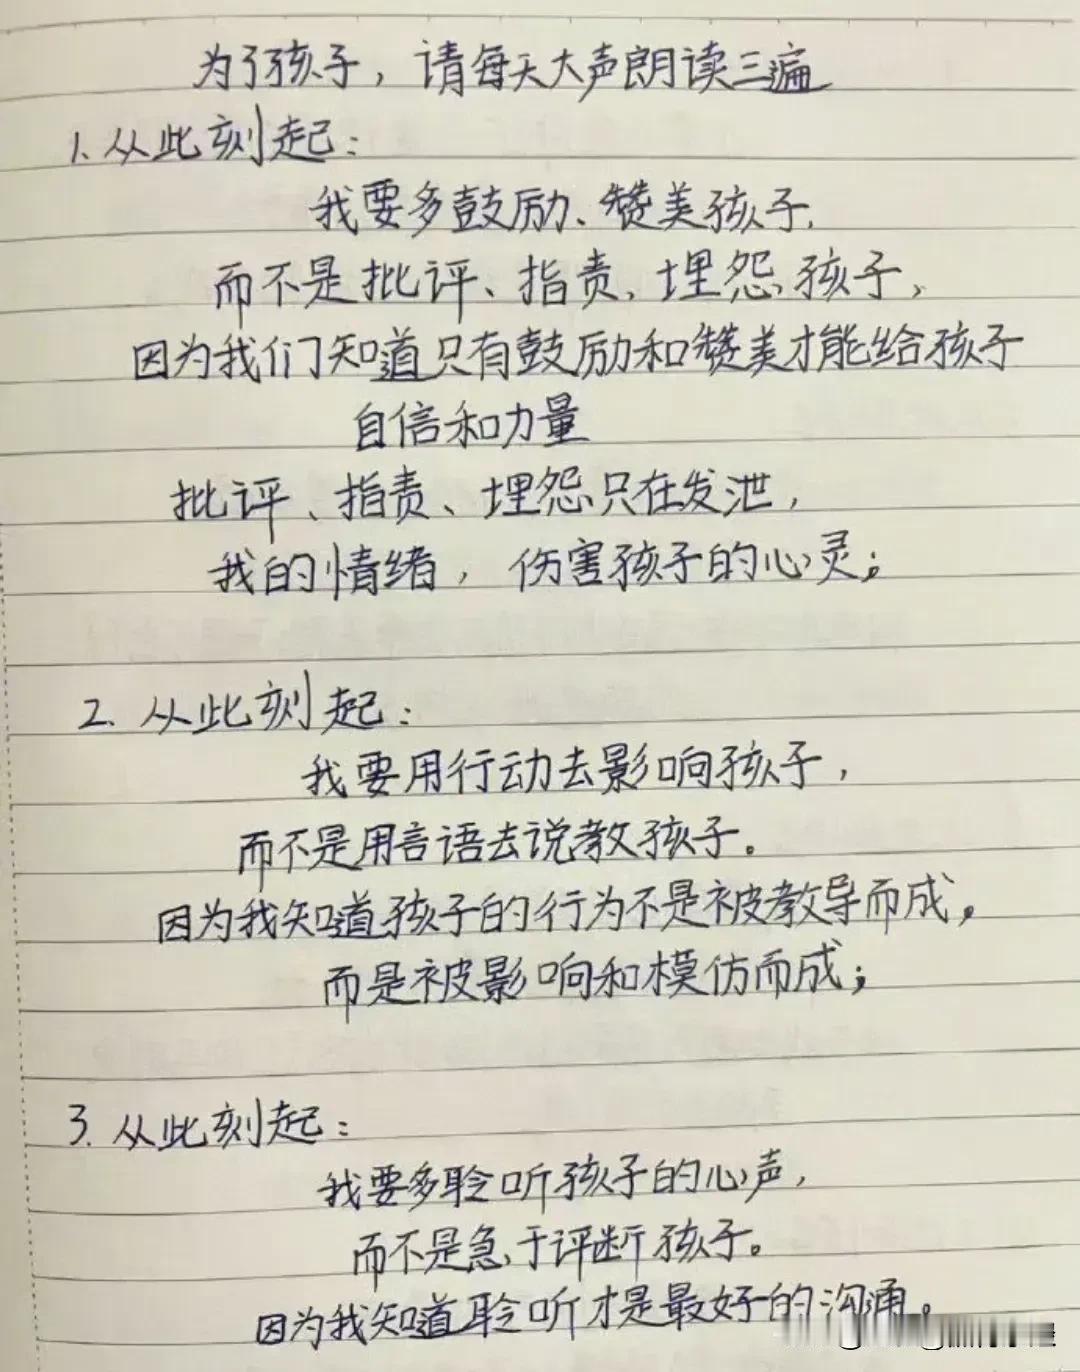 为了孩子，请每天大声朗读三遍
1.从此刻起：
我要多鼓励、赞美孩子，
而不是批评、指责、埋怨孩子，
因为我们知道只有鼓励和赞美才能给孩子
自信和力量
批评、指责、埋怨只在发泄，
我的情绪，伤害孩子的心灵；
2.从此刻起：
我要用行动去影响孩子，
而不是用言语去说教孩子。
因为我知道孩子的行为不是被教导而成，
而是被影响和模仿而成；
3.从此刻起：
我要多聆听孩子的心声，
而不是急于评断孩子。
因为我知道聆听才是最好的沟通。